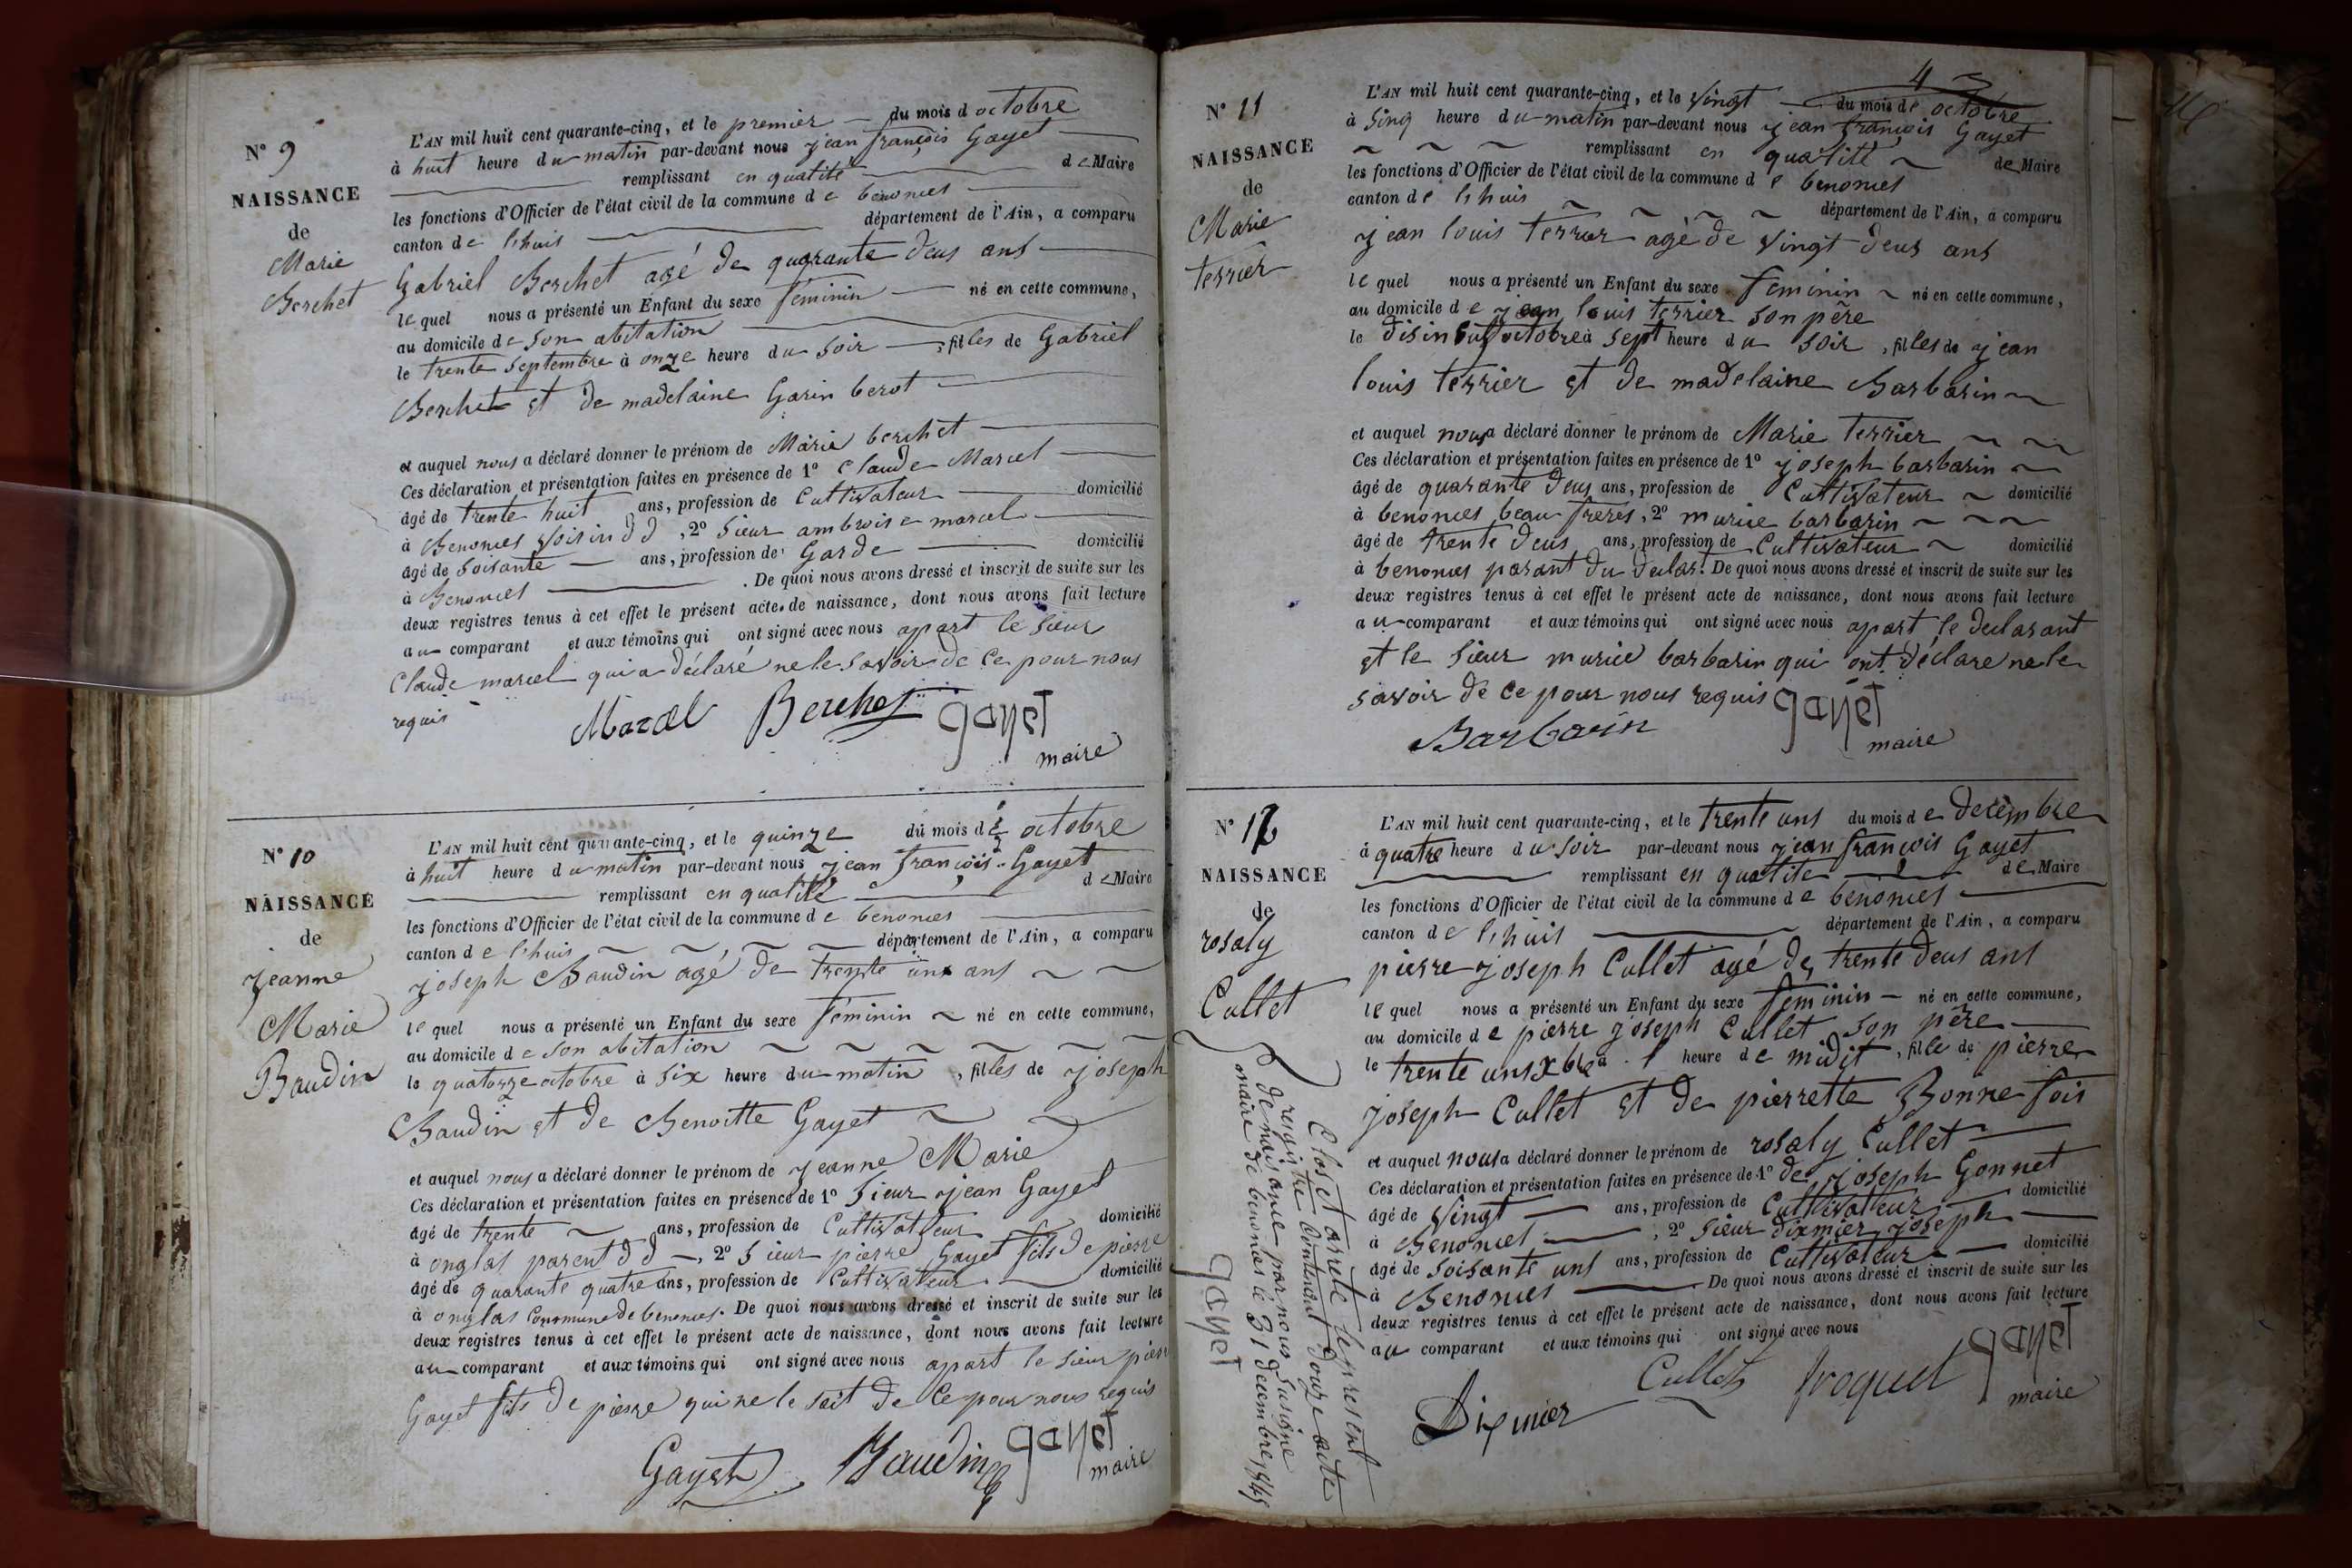 N° 9
NAISSANCE
de
Marie
Berchet
L'AN mil huit cent quarante-cinq, et le premier du mois d octobre
à huit heure du matin par-devant nous jean françois Gayet
remplissant en qualité de Maire
les fonctions d'Officier de l'état civil de la commune de benonces
canton de l'huis département de l'Ain, a comparu
Gabriel Berchet agé de quarante deus ans
lequel nous a présenté un Enfant du sexe féminin né en cette commune,
au domicile de son abitation
le trente septembre à onze heure du soir, filles de Gabriel
Berchet et de madelaine Garin berot
et auquel nous a déclaré donner le prénom de Marie berchet
Ces déclaration et présentation faites en présence de 1° Claude Marcel
âgé de trente huit ans, profession de Cultivateur domicilié
à Benonces voisin d d, 2° Sieur ambroise marcel
âgé de soisante ans, profession de Garde domicilié
à Benonces. De quoi nous avons dressé et inscrit de suite sur les
deux registres tenus à cet effet le présent acte de naissance, dont nous avons fait lecture
au comparant et aux témoins qui ont signé avec nous apart le sieur
Claude marcel qui a déclaré ne le savoir de ce pour nous
requis
Marcel Berchet gayet
maire
N° 10
NAISSANCE
de
Jeanne
Marie
Baudin
L'AN mil huit cent quarante-cinq, et le quinze du mois d octobre
à huit heure du matin par-devant nous jean françois Gayet
remplissant en qualité de Maire
les fonctions d'Officier de l'état civil de la commune de benonces
canton de l'huis département de l'Ain, a comparu
joseph Baudin agé de trente uns ans
lequel nous a présenté un Enfant du sexe féminin né en cette commune,
au domicile de son abitation
le quatorze octobre à six heure du matin, filles de joseph
Baudin et de Benoitte Gayet
et auquel nous a déclaré donner le prénom de jeanne Marie
Ces déclaration et présentation faites en présence de 1° Sieur jean Gayet
âgé de trente ans, profession de Cultivateur domicilié
à onglas parent d d, 2° Sieur pierre Gayet fils de pierre
âgé de quarante quatre ans, profession de Cultivateur domicilié
à onglas Commune de benonces. De quoi nous avons dressé et inscrit de suite sur les
deux registres tenus à cet effet le présent acte de naissance, dont nous avons fait lecture
au comparant et aux témoins qui ont signé avec nous apart le sieur
Gayet fils de pierre qui ne le sait de ce pour nous requis
Gayet Baudin gayet
maire
4
N° 11
NAISSANCE
de
Marie
terrier
L'AN mil huit cent quarante-cinq, et le vingt du mois de octobre
à sinq heure du matin par-devant nous jean françois Gayet
remplissant en qualité de Maire
les fonctions d'Officier de l'état civil de la commune de benonces
canton de l'huis département de l'Ain, a comparu
jean louis terrier agé de vingt deus ans
lequel nous a présenté un Enfant du sexe féminin né en cette commune,
au domicile de jean louis terrier son père
le octobre à sept heure du soir, filles de jean
louis terrier et de madelaine Barbarin
et auquel nous a déclaré donner le prénom de Marie terrier
Ces déclaration et présentation faites en présence de 1° joseph barbarin
âgé de quarante deus ans, profession de Cultivateur domicilié
à benonces beau freres, 2° murice barbarin
âgé de trente deus ans, profession de Cultivateur domicilié
à benonces parant du declar. De quoi nous avons dressé et inscrit de suite sur les
deux registres tenus à cet effet le présent acte de naissance, dont nous avons fait lecture
au comparant et aux témoins qui ont signé avec nous apart le declarant
et le sieur murice barbarin qui ont déclare ne le
savoir de ce pour nous requis gayet
Barbarin maire
N° 12
NAISSANCE
de
rosaly
Cullet
Clos et arrete le present
registre Contenant douze acte
de naisance par nous
maire de benonces le 31 decembre 1845
gayet
L'AN mil huit cent quarante-cinq, et le trente uns du mois de decembre
à quatre heure du soir par-devant nous jean françois Gayet
remplissant en qualite de Maire
les fonctions d'Officier de l'état civil de la commune de benonces
canton de l'huis département de l'Ain, a comparu
pierre joseph Cullet agé de trente deus ans
lequel nous a présenté un Enfant du sexe féminin né en cette commune,
au domicile de pierre joseph Cullet son père
le trente uns xbre à 1 heure de midit, fille de pierre
joseph Cullet et de pierrette Bonne fois
et auquel nous a déclaré donner le prénom de rosaly Cullet
Ces déclaration et présentation faites en présence de 1° de joseph Gonnet
âgé de vingt ans, profession de Cultivateur domicilié
à Benonces, 2° sieur dixmier joseph
âgé de soisante uns ans, profession de Cultivateur domicilié
à Benonces De quoi nous avons dressé et inscrit de suite sur les
deux registres tenus à cet effet le présent acte de naissance, dont nous avons fait lecture
au comparant et aux témoins qui ont signé avec nous
Dixmier Cullet gayet
maire